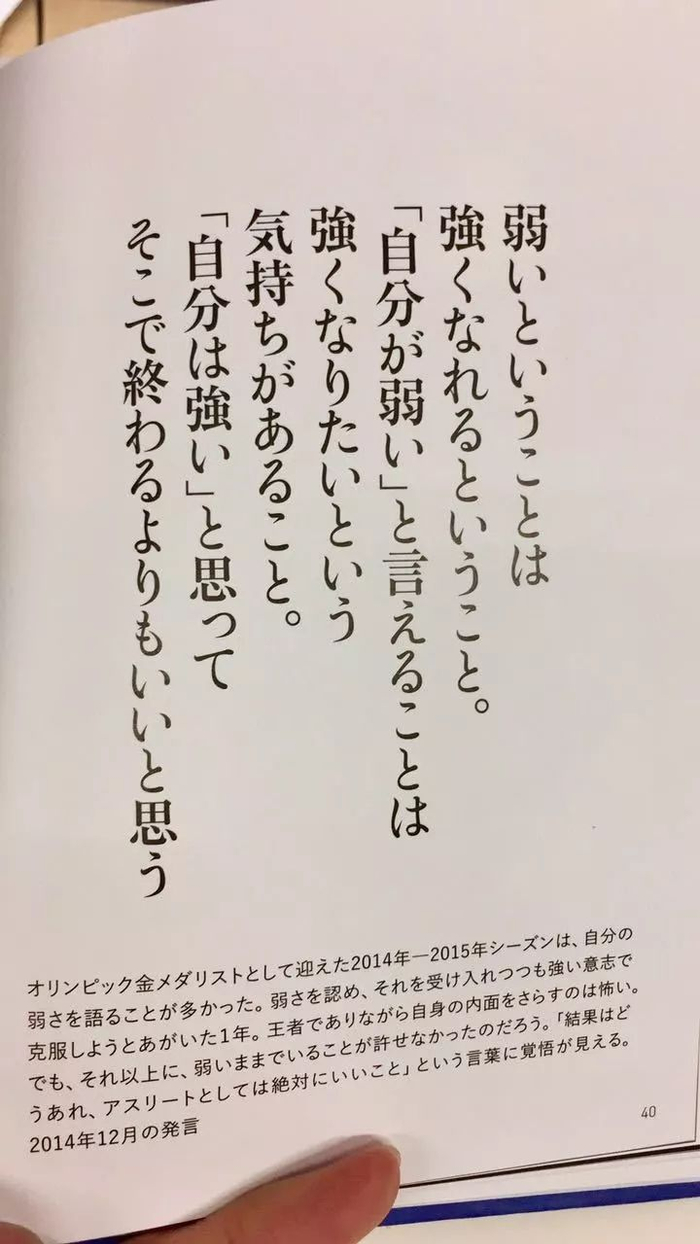 弱いということは
強くなれるということ。
「自分が弱い」と言えることは
強くなりたいという
気持ちがあること。
「自分は強い」と思って
そこで終わるよりもいいと思う
オリンピック金メダリストとして迎えた2014年―2015年シーズンは、自分の
弱さを語ることが多かった。弱さを認め、それを受け入れつつも強い意志で
克服しようとあがいた1年。王者でありながら自身の内面をさらすのは怖い。
でも、それ以上に、弱いままでいることが許せなかったのだろう。「結果はど
うあれ、アスリートとしては絶対にいいこと」という言葉に覚悟が見える。
2014年12月の発言
40